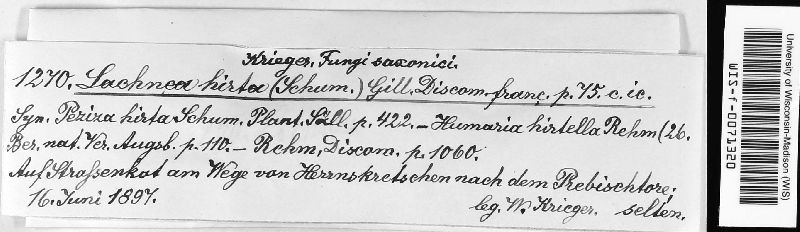 Krieger, Fungi saxonici.
1270. Lachnea hirta (Schum.) Gill. Discom. franç. p. 75. c. ic.
Syn. Peziza hirta Schum. Plant. Säll. p. 422. – Humaria hirtella Rehm (26.
Ber. nat. Ver. Augsb. p. 110. – Rehm, Discom. p. 1060.
Auf Strassenkot am Wege von Herrnskretschen nach dem Prebischtore;
16. Juni 1897. leg. W. Krieger. selten.
University of Wisconsin-Madison (WIS)
WIS-f-0071320